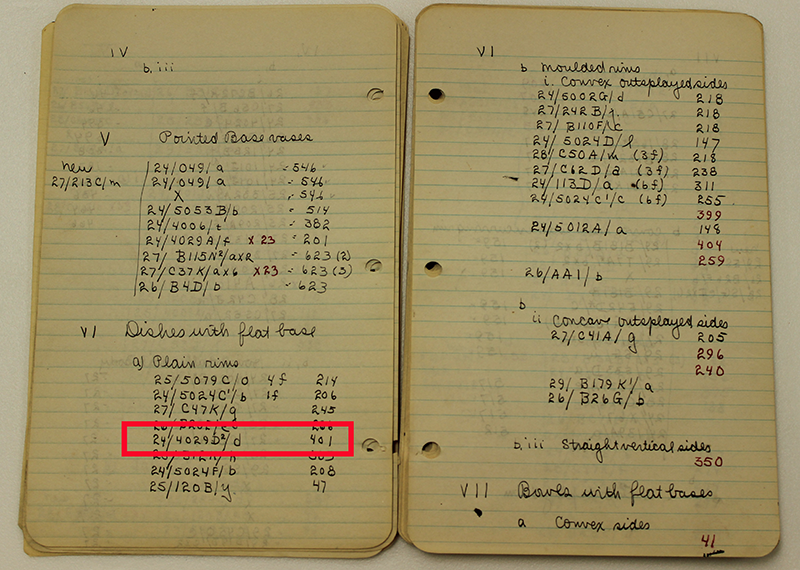 IV
b. iii
V Pointed Base vases
new 24/049/a - 546
27/213C/m 24/049/a - 546
X - 546
24/5053B/b - 514
24/4006/t - 382
24/4029A/f X 23 - 201
27/B115N²/ax2 - 623 (2)
27/C37K/ax6 X23 - 623 (3)
26/B4D/b - 623
VI Dishes with flat base
a) Plain rims
25/5079C/o 4f 214
24/5024C'/b 1f 206
27/C47K/g 245
24/4029D²/d 401
24/5024F/b 208
25/120B/y. 47
VI
b moulded rims
i. Convex outsplayed sides
24/5002G/d 218
27/242B/j. 218
27/B110F/c 218
24/5024D/l 147
28/C50A/m (3f) 218
27/C62D/a (3f) 238
24/113D/a (6f) 311
24/5024C'/c (6f) 255
399
24/5012A/a 148
404
259
26/AA1/b
b
ii Concave outsplayed sides
27/C41A/g 205
296
240
29/B179K'/a
26/B26G/b
b. iii Straight vertical sides
350
VII Bowls with flat bases
a Convex sides
41